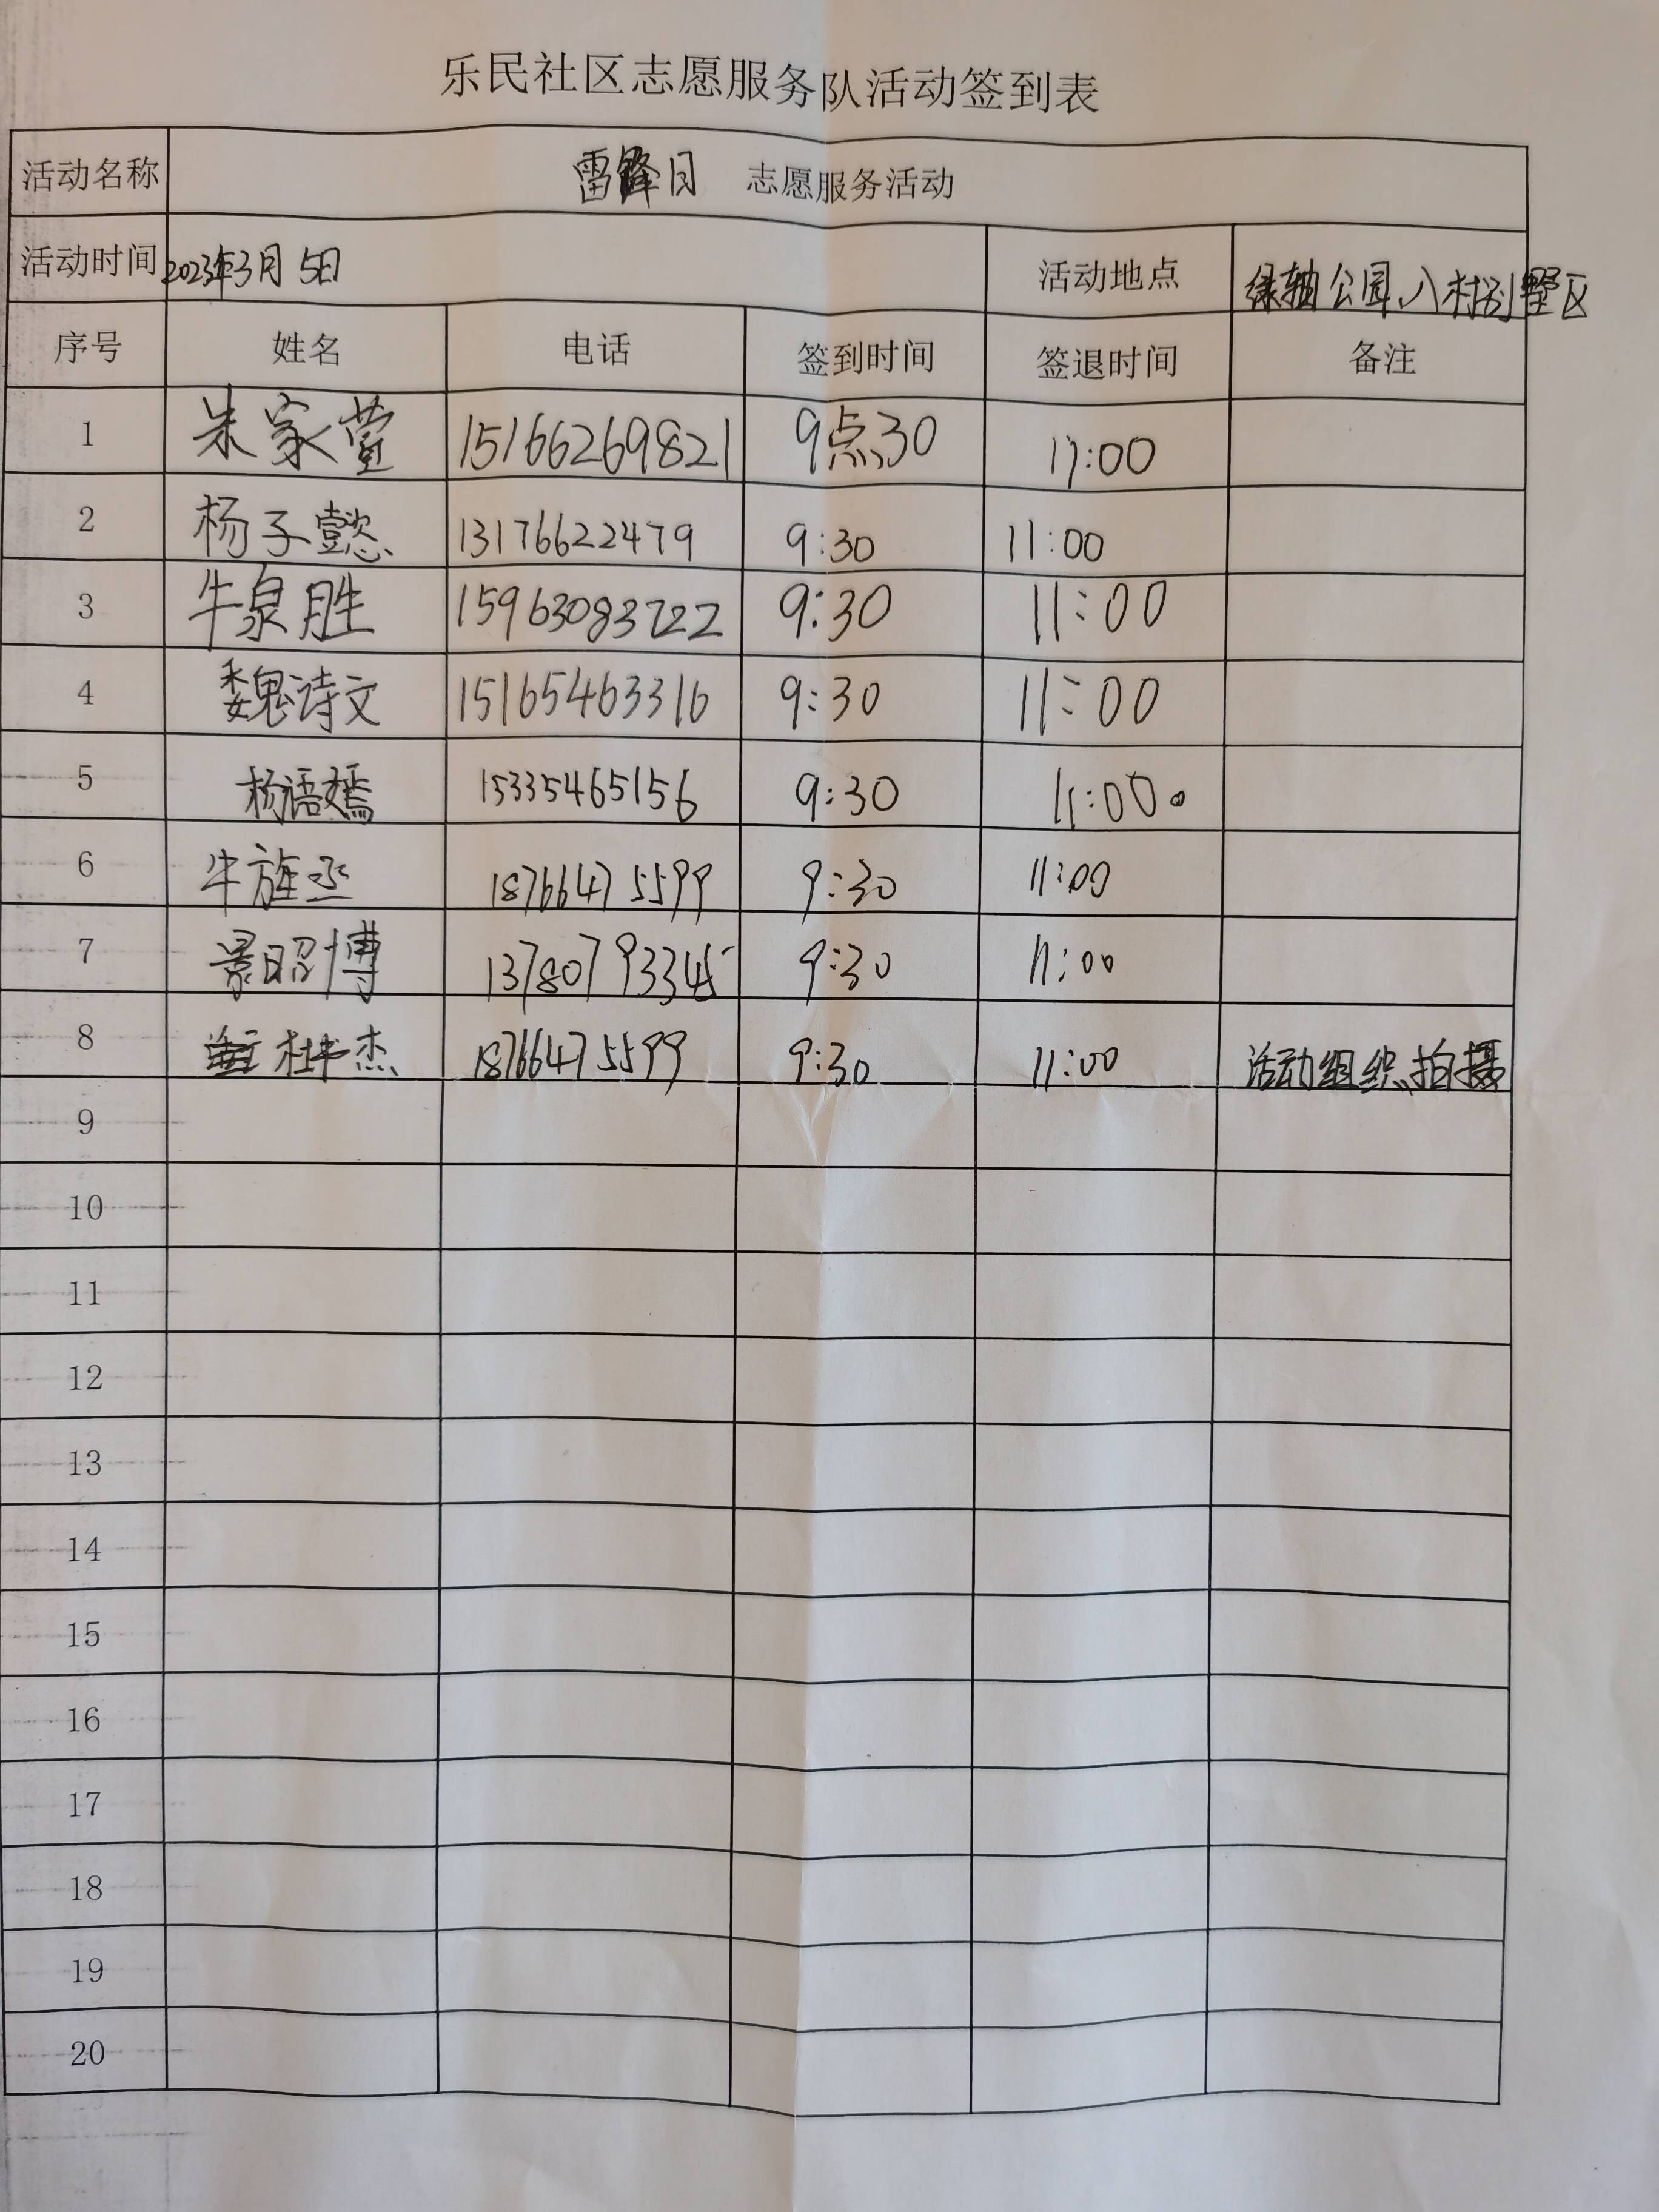 乐民社区志愿服务队活动签到表
活动名称 雷锋日 志愿服务活动
活动时间 2023年3月5日 活动地点 绿轴公园、八村别墅区
序号 姓名 电话 签到时间 签退时间 备注
1 朱家萱 15166269821 9点30 11:00
2 杨子懿 13176622479 9:30 11:00
3 牛泉胜 15963083722 9:30 11:00
4 魏诗文 15165463316 9:30 11:00
5 杨语嫣 15335465156 9:30 11:00。
6 牛旌丞 18766475599 9:30 11:00
7 景昭博 13780793345 9:30 11:00
8 杜书杰 18766475599 9:30 11:00 活动组织、拍摄
9
10
11
12
13
14
15
16
17
18
19
20